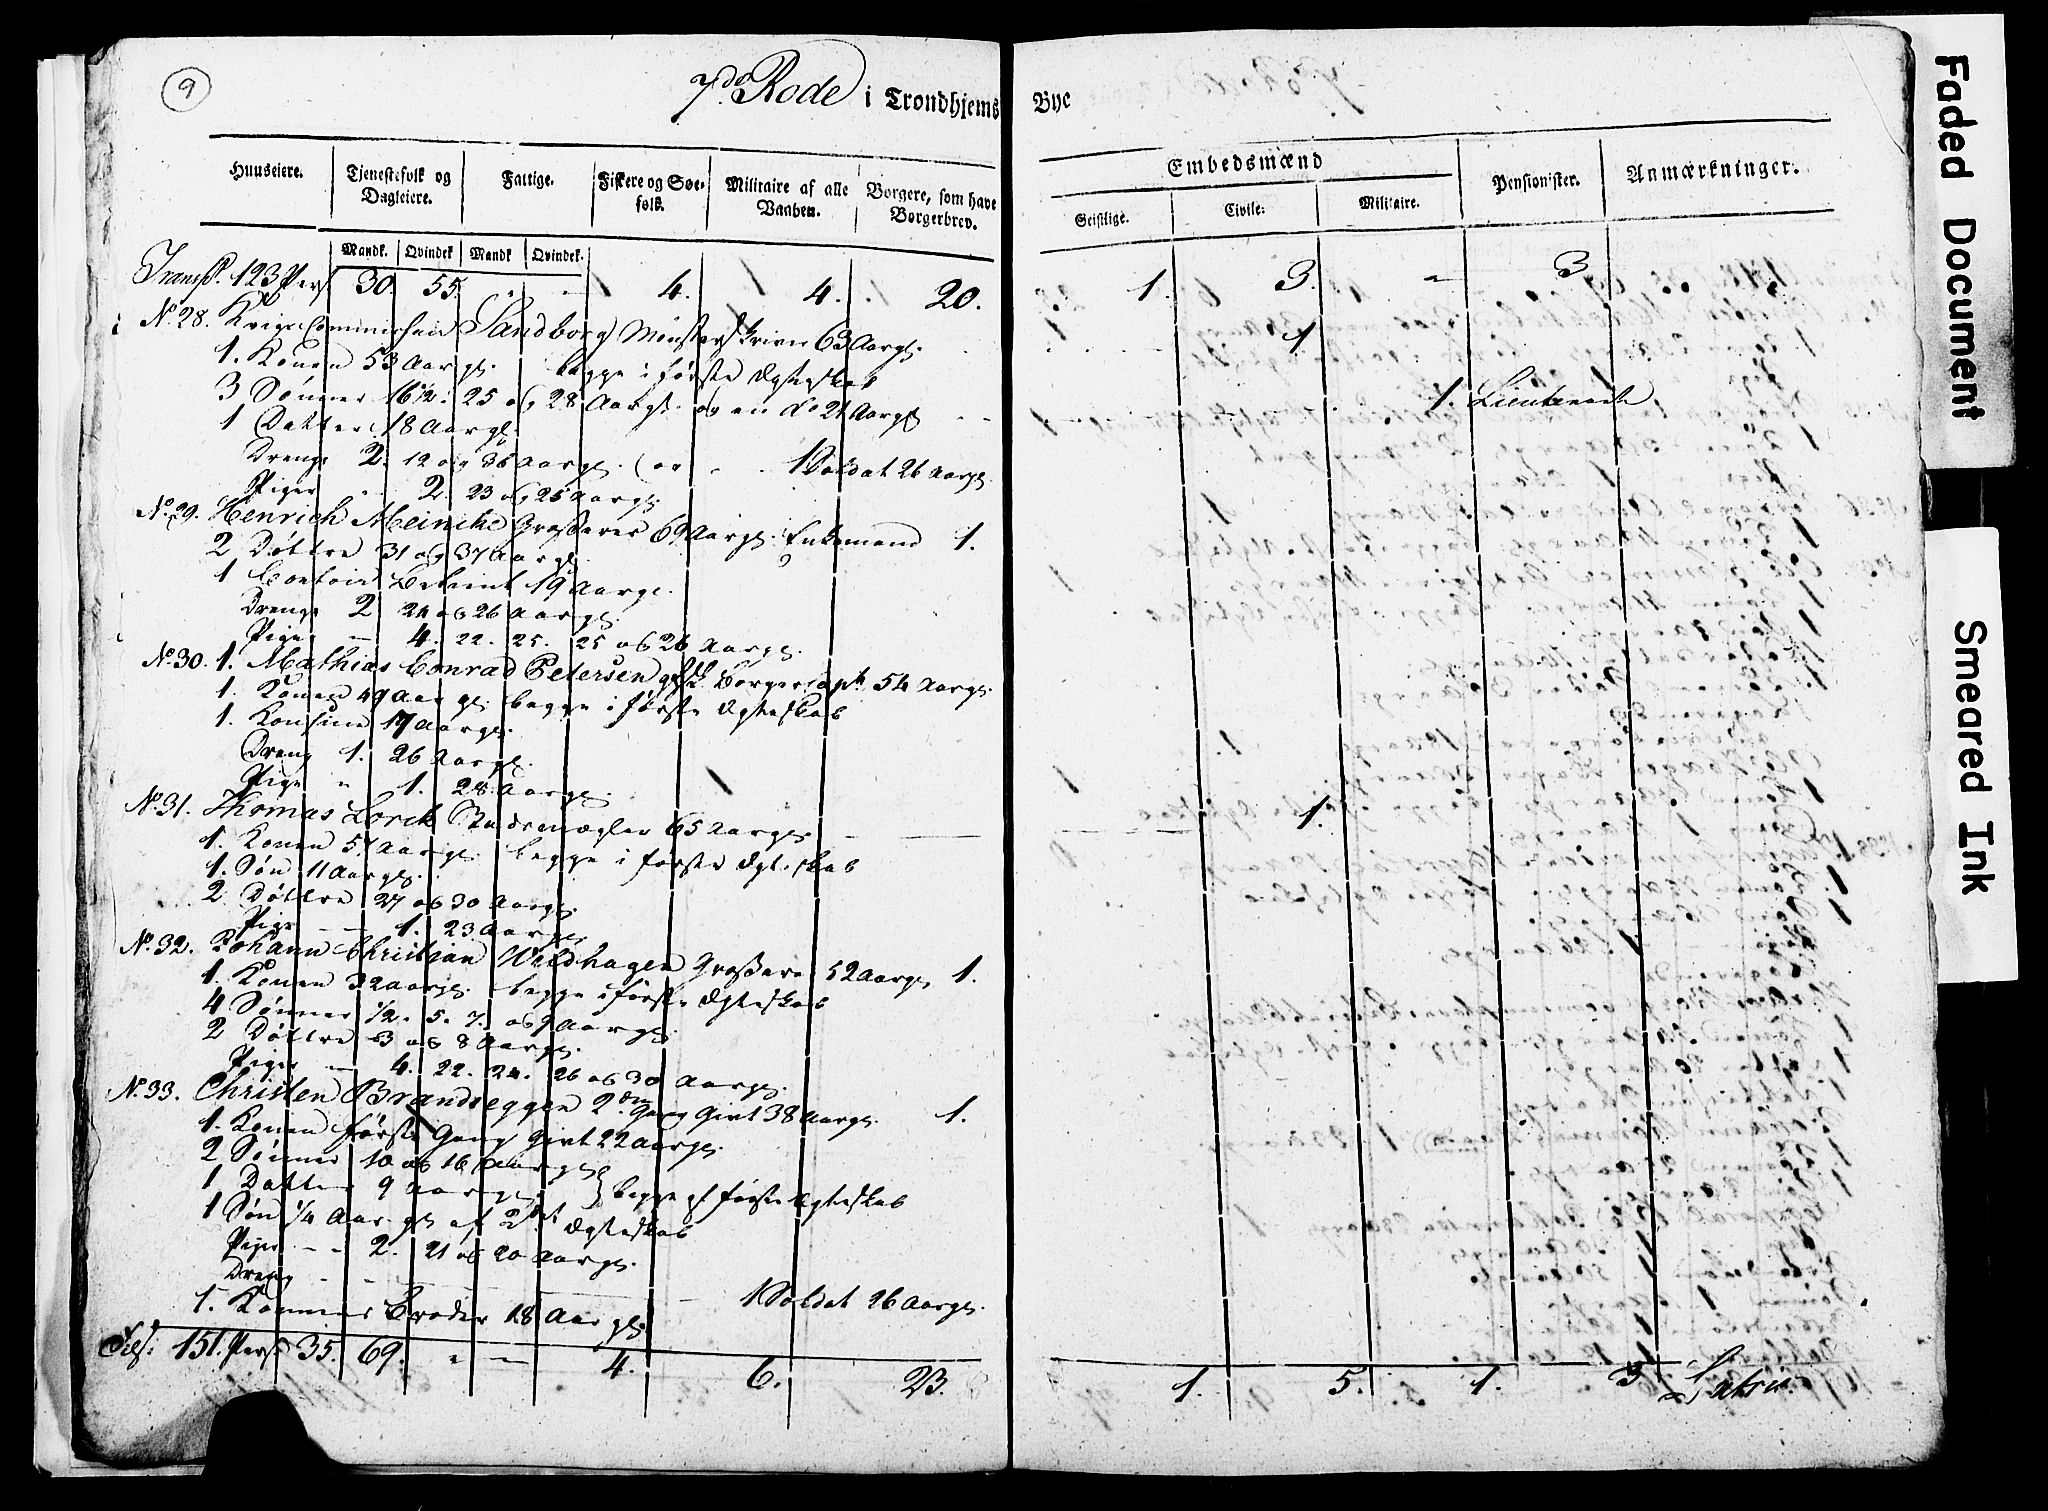 9
7de Rode i Trondhjems Bye
Huuseiere. Tjenestefolk og Dagleiere. Fattige. Fiskere og Søefolk. Militaire af alle Vaaben. Borgere, som have Borgerbrev. Embedsmænd Pensionister. Anmærkninger.
Geistlige. Civile. Militaire.
Mandk. Qvindek. Mandk. Qvindek.
Transp. 123 Pers. 30. 55. " — 4. 4. 20. 1. 3. " 3.
No. 28. Krigscommissair Sandborg Mønsterskriver 63 Aarge. 1.
1. Konen 53 Aarge. begge i første Ægteskab
3 Sønner 16 1/2. 25 og 28 Aarge. og en do 21 Aarge 1. Lieutenant
1 Datter 18 Aarge
Drenge 2. 12 og 36 Aarge. 1 Soldat 26 Aarge.
Piger 2. 23 og 25 Aarge
No. 29. Henrich Meincke Grosserer 69 Aarge. Enkemand 1.
2 Døttre 31 og 37 Aarge.
1 Contoir Betient 19 Aarge.
Drenge 2 24 og 26 Aarge.
Piger — 4. 22. 25. 25 og 26 Aarge.
No. 30. 1. Mathias Conrad Petersen Borgercapt. 54 Aarge.
1. Konen 49 Aarge. begge i første Ægteskab
1. Konsine 17 Aarge.
Dreng 1. 26 Aarge.
Pige " 1. 28. Aarge.
No. 31. Thomas Lorck Stadsmægler 65 Aarge — 1.
1. Konen 51 Aarge. begge i første Ægteskab
1. Søn 11 Aarge.
2 Døttre 27 og 30 Aarge.
Pige — 1. 23. Aarge.
No. 32. Johann Christian Wildhagen Grosserer 52 Aarge 1.
1. Konen 32 Aarge. begge i første Ægteskab
4 Sønner 1/2. 5. 7. og 9 Aarge.
2 Døttre 3 og 8 Aarge.
Piger — 4. 22. 24. 26 og 30 Aarge.
No. 33. Christen Brandseggen 2den Gang Givt 38 Aarge. 1.
1. Konen første Gang Givt 22 Aarge.
2 Sønner 10 og 16 Aarge
1 Datter 9 Aarge. } begge af første Ægteskab
1 Søn 1/4 Aarge af 2det Ægteskab
Piger — 2. 21 og 20 Aarge.
Dreng - - 1 Soldat 26 Aarge.
1. Konnens Broder 18 Aarge
151. Pers. 35. 69. " — 4. 6. 23. 1. 5. 1. 3 Latus.
Faded Document
Smeared Ink